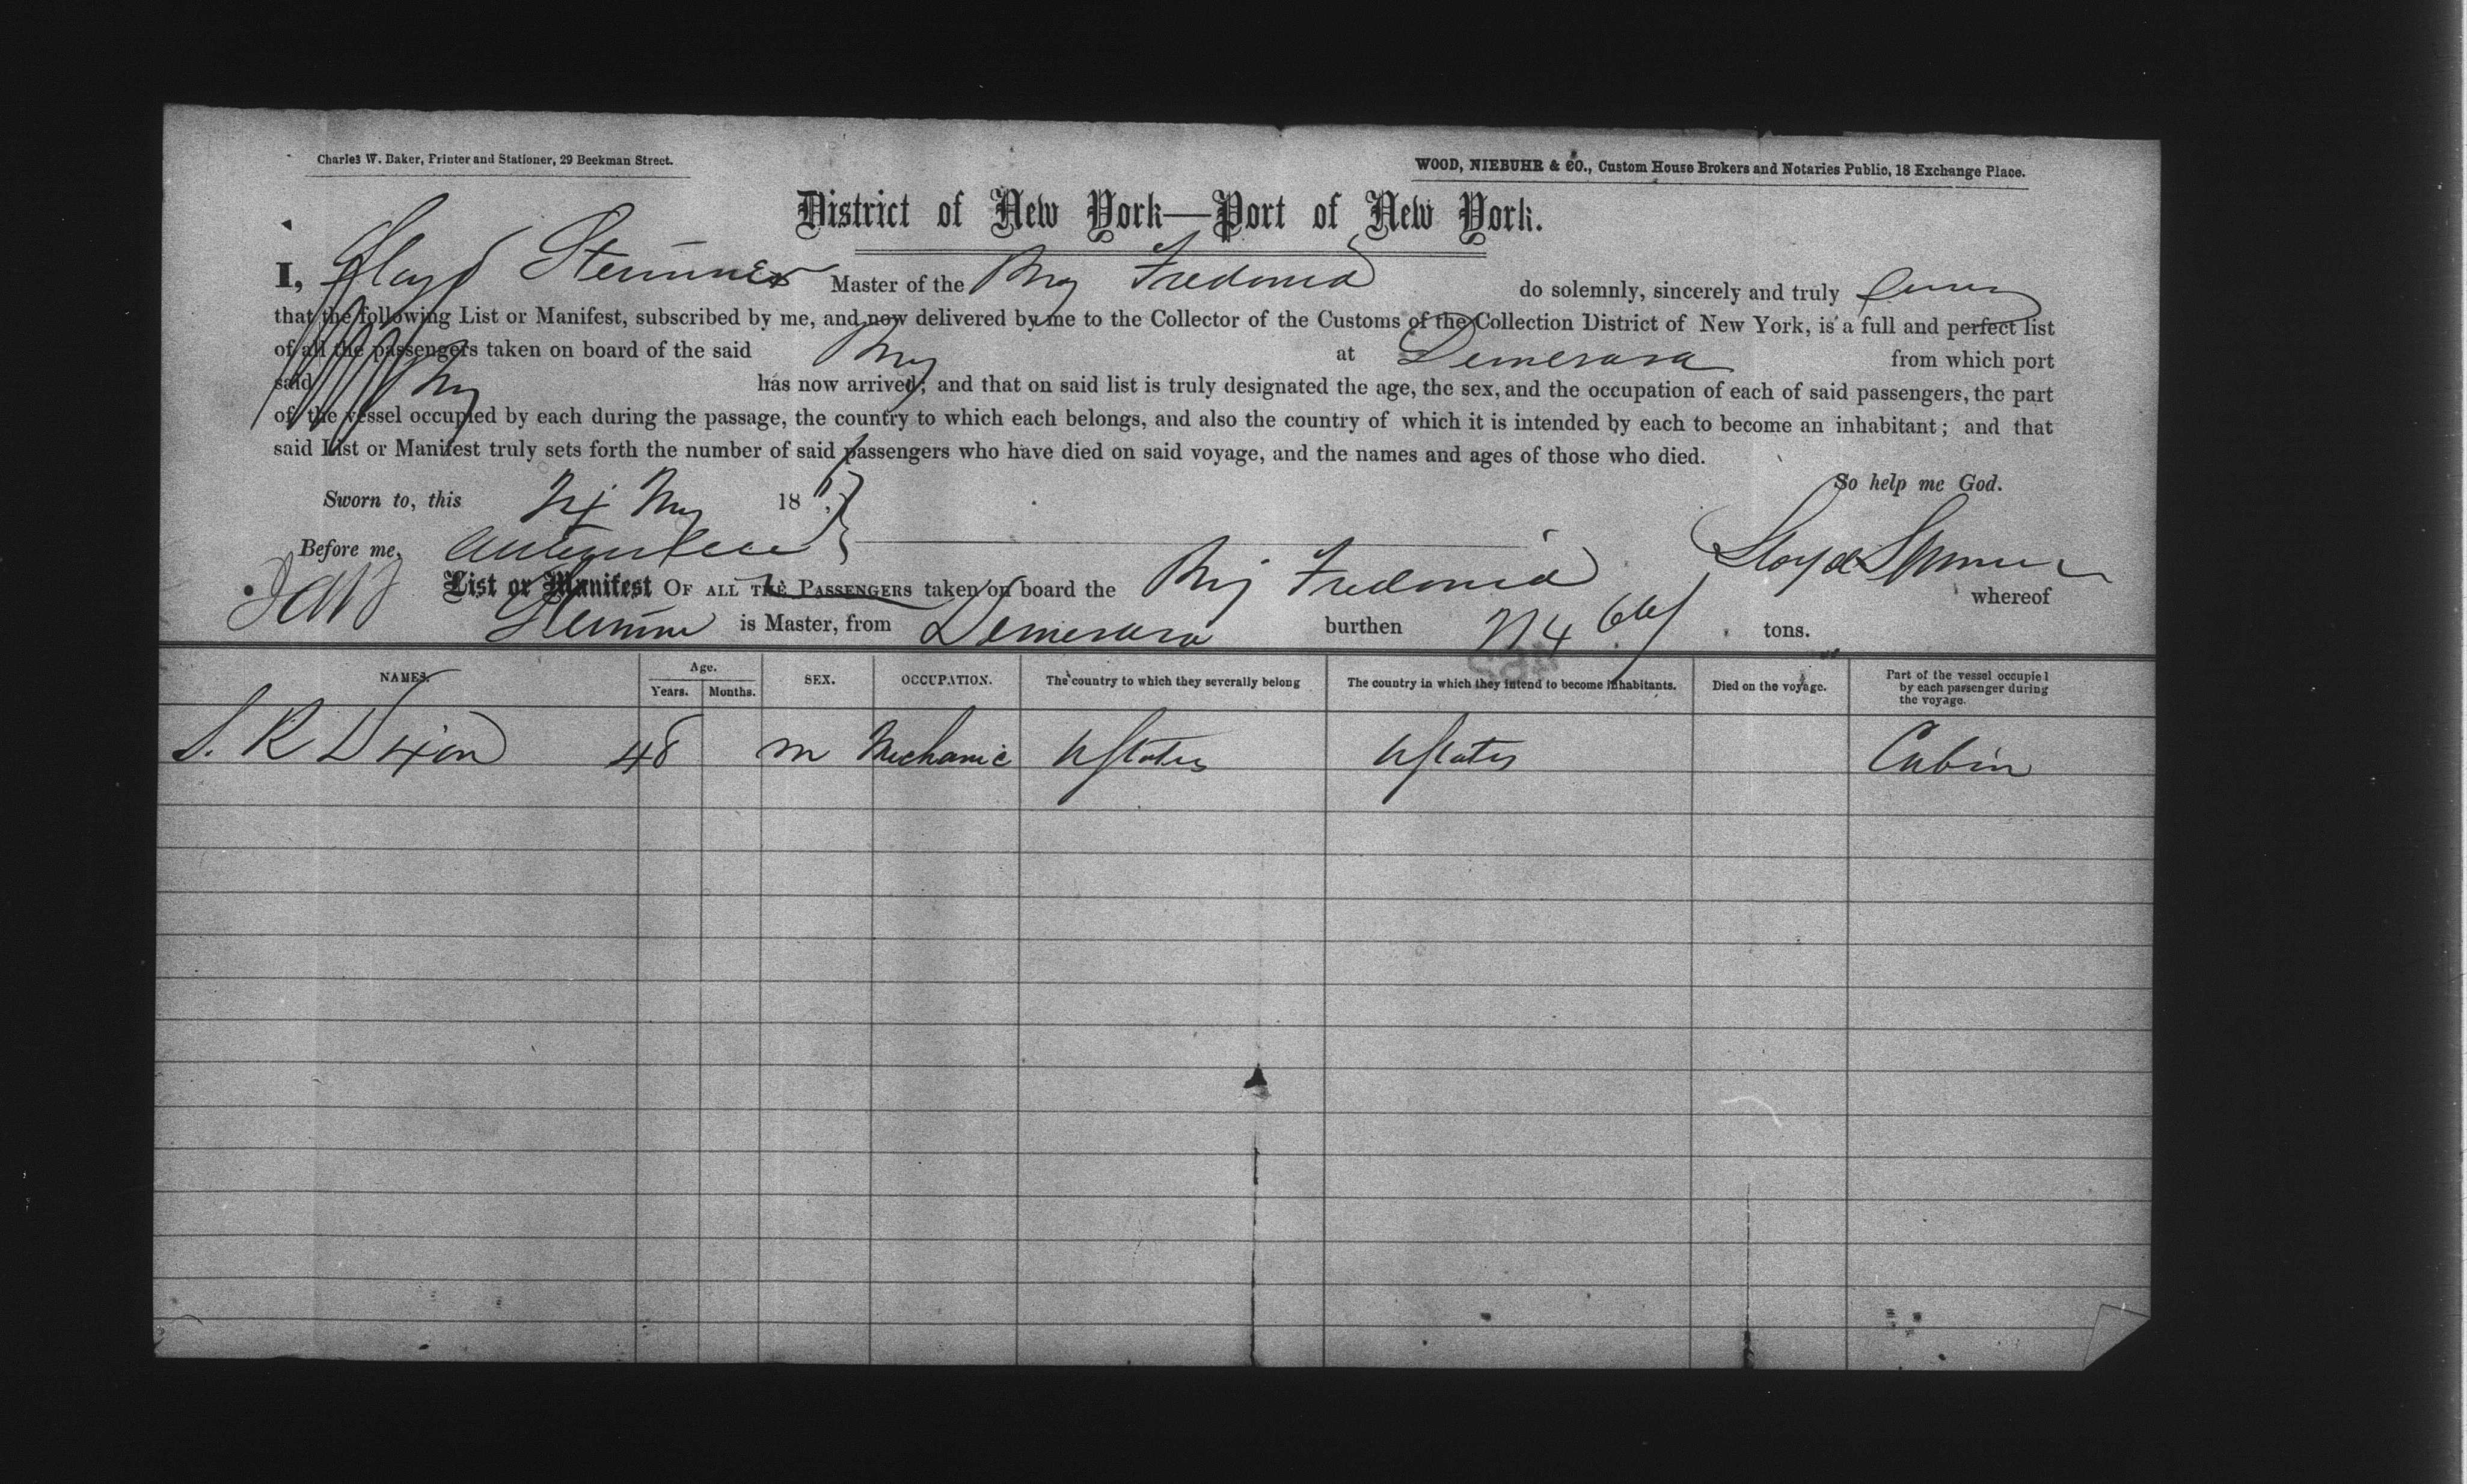 Charles W. Baker, Printer and Stationer, 29 Beekman Street.
WOOD, NIEBUHR & CO., Custom House Brokers and Notaries Public, 18 Exchange Place.
District of New York—Port of New York.
I, Lloyd Master of the Brig Fredonia do solemnly, sincerely and truly
that the following List or Manifest, subscribed by me, and now delivered by me to the Collector of the Customs of the Collection District of New York, is a full and perfect list
of all the passengers taken on board of the said Brig at Demerara from which port
said Brig has now arrived; and that on said list is truly designated the age, the sex, and the occupation of each of said passengers, the part
of the vessel occupied by each during the passage, the country to which each belongs, and also the country of which it is intended by each to become an inhabitant; and that
said List or Manifest truly sets forth the number of said passengers who have died on said voyage, and the names and ages of those who died.
So help me God.
Sworn to, this 18
Before me,
Lloyd
List or Manifest OF ALL THE PASSENGERS taken on board the Brig Fredonia whereof
is Master, from Demerara burthen tons.
NAMES. Age. Years. Months. SEX. OCCUPATION. The country to which they severally belong The country in which they intend to become inhabitants. Died on the voyage. Part of the vessel occupied by each passenger during the voyage.
S. R Dixon 48 m Mechanic UStates UStates Cabin